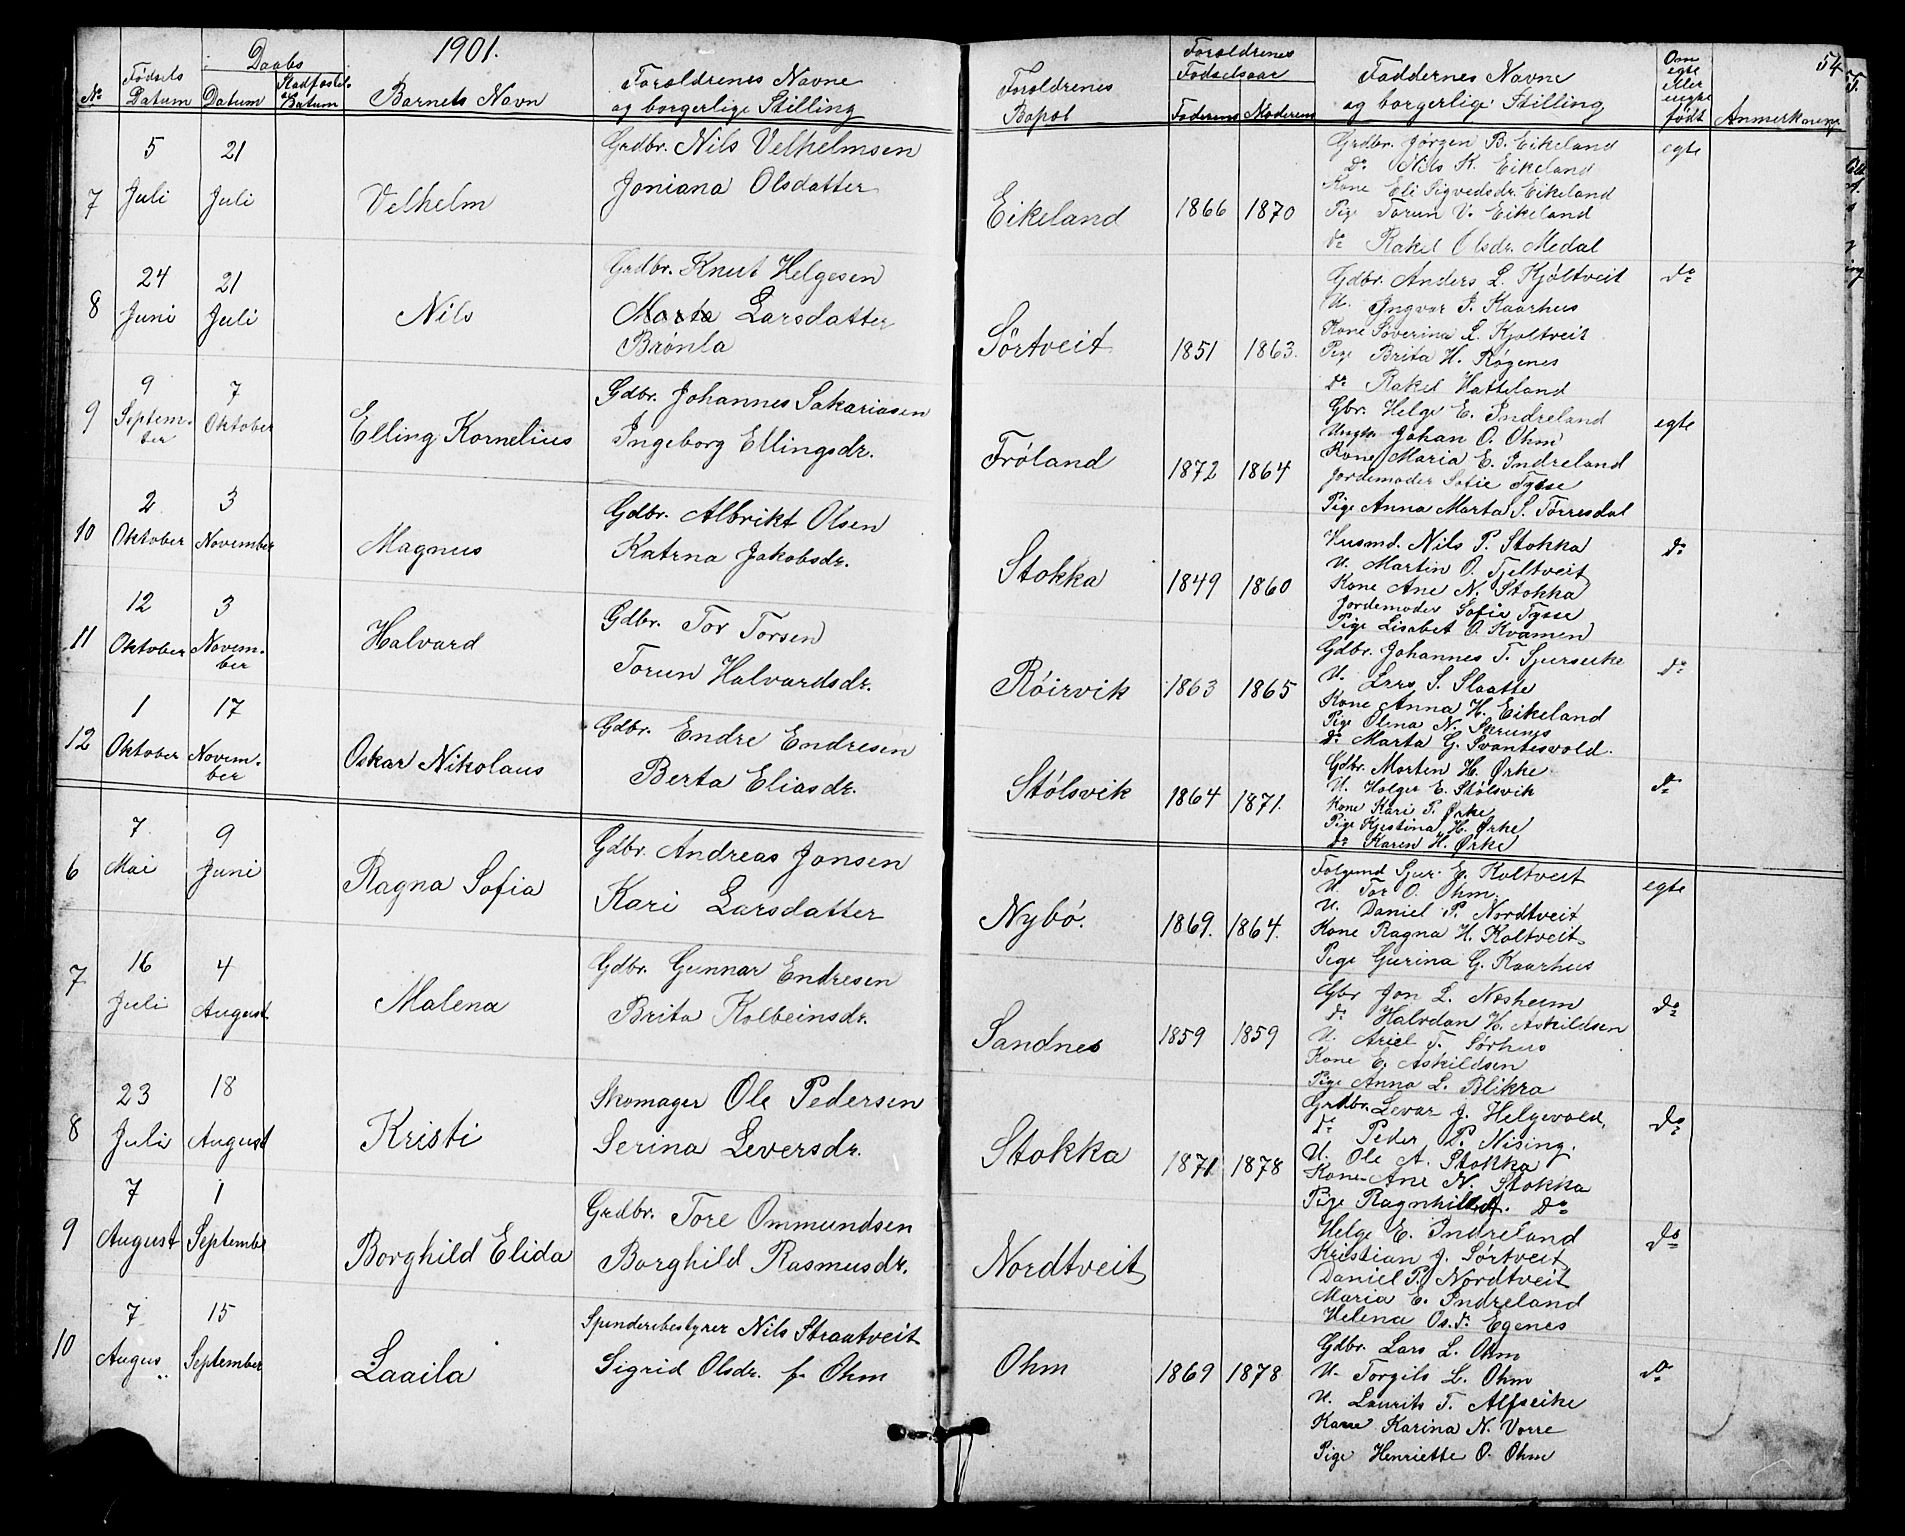 1901.
54
No Fødsels Datum Daabs Datum Stadfæstel. Datum Barnets Navn Forældrenes Navne og borgerlige Stilling
Forældrenes Bopæl Forældrenes Fødselsaar Faderens Moderens Faddernes Navne og borgerlige Stilling Om egte eller uegte født Anmerkning
7 5 Juli 21 Juli Velhelm
Grdbr. Nils Velhelmsen
Joniana Olsdatter
Eikeland 1866 1870
Grdbr. Jørgen B. Eikeland egte
do Nils K. Eikeland
Kone Eli Sigvedsdr. Eikeland
Pige Torun V. Eikeland
do Rakel Olsdr. Medal
8 24 Juni 21 Juli Nils
Grdbr. Knut Helgesen
Marta Larsdatter
Brønla
Sørtveit 1851 1863.
Gdbr. Anders L. Kjøltveit do
U. Ingvar J. Kaarhus
Kone Søverina L. Kjøltveit
Pige Brita H. Røgenes
do Rakel Hatteland
9 9 September 7 Oktober Elling Kornelius
Gdbr. Johannes Sakariasen
Ingeborg Ellingsdr.
Frøland 1872 1864
Gbr. Helge E. Indreland egte
Ungk. Johan O. Ohm
Kone Maria E. Indreland
Jordemoder Sofie Tysse
Pige Anna Marta S. Torresdal
10 2 Oktober 3 November Magnus
Gdbr. Albrikt Olsen
Katrna Jakobsdr.
Stokka 1849 1860
Husmd. Nils P. Stokka do
U. Martin O. Tjeltveit
Kone Ane N. Stokka
Jordemoder Sofie Tysse
Pige Lisabet O. Kvamen
11 12 Oktober 3 November Halvard
Gdbr. Tor Torsen
Torun Halvardsdr.
Røirvik 1863 1865
Gdbr. Johannes T. Sjurseike do
U. Lars S. Slaatte
Kone Anna H. Eikeland
Pige Olena N. Skrunes
do Marta G. Svantesvold.
12 1 Oktober 17 November Oskar Nikolaus
Gdbr. Endre Endresen
Berta Eliasdr.
Stólsvik 1864 1871.
Gdbr. Morten H. Ørke do
U. Holger E. Stólsvik
Kone Kari P. Ørke
Pige Kjestina H. Ørke
do Karen H. Ørke
6 7 Mai 9 Juni Ragna Sofia
Gdbr. Andreas Jonsen
Kari Larsdatter
Nybø. 1869. 1864.
Sjur J. Koltveit egte
U. Tor O. Ohm
U. Daniel P. Nordtveit
Kone Ragna H. Koltveit
Pige Gurina G. Kaarhus
7 16 Juli 4 August Malena
Gdbr. Gunnar Endresen
Brita Kolbeinsdr.
Sandnes 1859 1859
Gbr Jon L. Nesheim do
do Halvdan H. Askildsen
U. Ariel T. Sørhus
Kone E. Askildsen
Pige Anna L. Blikra
8 23 Juli 18 August Kristi
Skomager Ole Pedersen
Serina Leversdr.
Stokka 1871 1878
Grdbr. Levar J. Helgevold, do
do Peder P. Nising.
U. Ole A. Stokka
Kone Ane N. Stokka
Pige Ragnhild do
9 7 August 1 September Borghild Elida
Grdbr. Tore Ommundsen
Borghild Rasmusdr.
Nordtveit
Helge E. Indreland do
Kristian J. Sørtveit
Daniel P. Nordtveit
Maria E. Indreland
Helena Os.dr Egenes
10 7 Augus 15 September Laaila
Spinderibestyrer Nils Straatveit
Sigrid Olsdr. f. Ohm
Ohm 1869 1878
Gdbr. Lars L. Ohm
U. Torgils L. Ohm do
U. Laurits T. Alfseike
Kone Karina N. Vorre
Pige Henriette O. Ohm